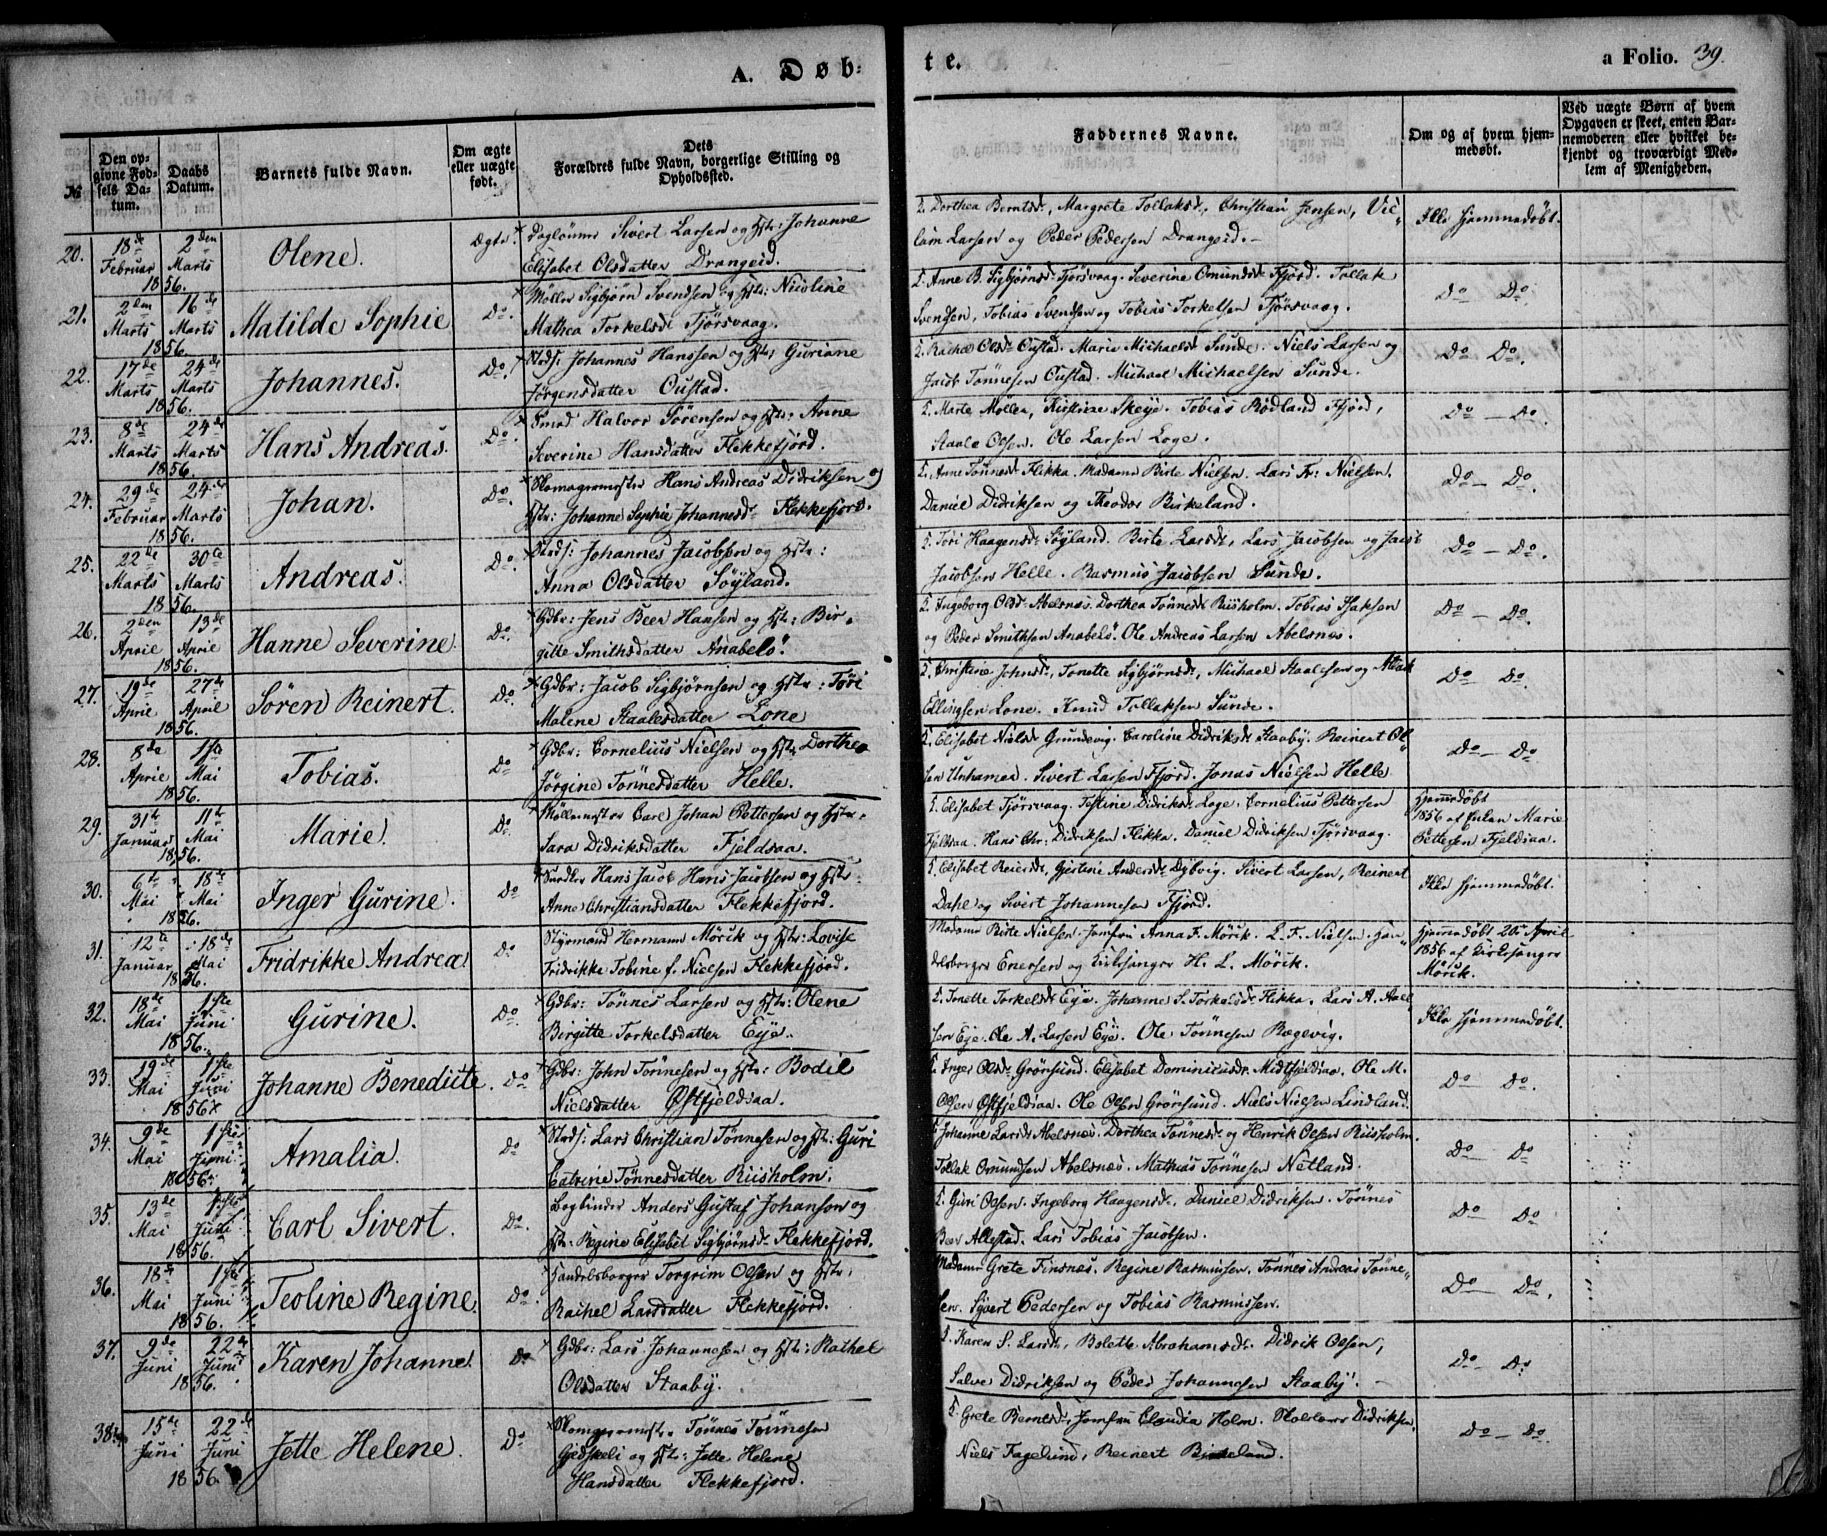 A. Døb-
No
Den op-
givne Fød-
sels Da-
tum.
Daabs
Datum.
Barnets fulde Navn.
Om ægte
eller uægte
født.
Dets
Forældres fulde Navn, borgerlige Stilling og
Opholdssted.
20. 18de Februar 1856. 2den Marts Olene. Ægte. Daglønner Sivert Larsen og Hstr: Johanne
Elisabet Olsdatter Drangeid.
21. 2den Marts 1856. 16de Marts Matilde Sophie Do. Møller Sigbjørn Svendsen og Hstr: Nicoline
Mathea Torkelsd. Tjørsvaag.
22. 17de Marts 1856. 24de Marts Johannes. Do. Strds: Johannes Hanssen og Hstr: Guriane
Jørgensdatter Oustad.
23. 8de Marts 1856. 24de Marts Hans Andreas. Do. Smed Halvor Sørensen og Hstr: Anne
Severine Hansdatter Flekkefjord.
24. 29de Februar 1856. 24de Marts Johan. Do. Skomagermester Hans Andreas Didriksen og
Hstr: Johanne Sophie Johannesd. Flekkefjord.
25. 22de Marts 1856. 30te Marts Andreas. Do. Strds: Johannes Jacobsen og Hstr:
Anna Olsdatter Søyland.
26. 2den April 1856. 13de April Hanne Severine. Do. Gdbr: Jens Beer Hansen og Hstr: Bir-
gitte Smithsdatter Anabelø.
27. 19de April 1856. 27de April Søren Reinert. Do. Gdbr: Jacob Sigbjørnsen og Hstr: Tøri
Malene Staalesdatter Lone
28. 8de April 1856. 1ste Mai Tobias. Do Gdbr: Cornelius Nielsen og Hstr. Dorthea
Jørgine Tønnesdatter Helle.
29. 31te Januar 1856. 11te Mai Marie. Do Møllemester Carl Johan Pettersen og Hstr.
Sara Didriksdatter Fjeldsaa.
30. 6te Mai 1856. 18de Mai Inger Gurine. Do Snedker Hans Jacob Hans Jacobsen og Hstr.
Anne Christiansdatter Flekkefjord.
31. 12te Januar 1856. 18de Mai Fridrikke Andrea Do Styrmand Hermann Mørik og Hstr: Lovise
Fridrikke Tobine f. Nielsen Flekkefjord.
32. 18de Mai 1856. 1ste Juni Gurine. Do. Gdbr: Tønnes Larsen og Hstr: Olene
Birgitte Torkelsdatter Eye.
33. 19de Mai 1856. 1ste Juni Johanne Benedicte. Do Gdbr: John Tønnesen og Hstr: Bodil
Nielsdatter Østfjeldsaa.
34. 9de Mai 1856. 1ste Juni Amalia. Do Strds: Lars Christian Tønnesen og Hstr: Guri
Catrine Tønnesdatter Riisholm.
35. 13de Mai 1856. 1ste Juni Carl Sivert. Do. Bogbinder Anders Gustaf Johanson og
Hstr: Regine Elisabet Sigbjørnsd. Flekkefjord.
36. 18de Mai 1856. 1ste Juni Teoline Regine. Do. Handelsborger Torgrim Olsen og Hstr.
Rachel Larsdatter Flekkefjord.
37. 9de Juni 1856. 22de Juni Karen Johanne. Do Gdbr: Lars Johannesen og Hstr: Rathel
Olsdatter Staaby.
38. 15de Juni 1856. 22de Juni Jette Helene. Do Skomagermestr. Tønnes Tønnesen
Gjedskeli og Hstr: Jette Helene
Hansdatter Flekkefjord.
te.
a Folio. 39.
Faddernes Navne.
Om og af hvem hjem-
medøbt.
Ved uægte Børn af hvem
Opgaven er skeet, enten Bar-
nemoderen eller hvilket be-
kjendt og troværdigt Med-
lem af Menigheden.
Dorthea Berntsd., Margrete Tollaksd., Christian Jensen, Vil- Ikke hjemmedøbt.
lum Larsen og Peder Pedersen Drangeid.
Anne B. Sigbjørnsd. Tjørsvaag. Severine Omundsd. Fjord. Tollak Do Do.
Svendsen, Tobias Svendsen og Tobias Torkelsen Tjørsvaag.
Rachel Olsd. Oustad. Marie Michaelsd. Sunde. Niels Larsen og Do Do.
Jacob Tønnesen Oustad. Michael Michaelsen Sunde.
Marte Møller, Kirstine Skeye. Tobias Rødland Fjord, Do - Do.
Staale Olsen. Ole Larsen Loge.
Anne Tønnesd. Flikka. Madame Birte Nielsen. Lars Fr. Nielsen. Do - Do.
Daniel Didriksen og Theodor Birkeland.
Tori Haagensd. Søyland. Birte Larsd., Lars Jacobsen og Jacob Do - Do.
Jacobsen Helle. Rasmus Jacobsen Sunde.
Ingeborg Olsd. Abelsnæs. Dorthea Tønnesd. Riisholm. Tobias Isaksen Do - Do.
og Peder Smithsen Anabelø. Ole Andreas Larsen Abelsnæs.
Christine Johnsd., Tonette Sigbjørnsd., Michael Staalesen og Do Do.
Ellingsen Lone. Knud Tollaksen Sunde.
Elisabet Nielsd. Grundevig. Caroline Didriksd. Staaby. Reinert Ol- Do - Do
sen Unhamar. Sivert Larsen Fjord. Jonas Nielsen Helle
Elisabet Tjørsvaag. Didriksd. Loge. Cornelius Pettersen Hjemmedøbt
Fjeldsaa. Hans Chr. Didriksen Flikka. Daniel Didriksen Tjørsvaag. 1856 af Marie
Pettersen Fjeldsaa.
Elisabet Reiersd., Gjertine Andersd. Dybvig. Sivert Larsen, Reinert Ikke hjemmedøbt.
Dahl og Sivert Johannesen Fjord.
Madame Birte Nielsen. Jomfru Anna F. Mørik. L. F. Nielsen. Han- Hjemmedøbt 20. April
delsborger Enersen og Kirkesanger H. L. Mørik. 1856 af Kirkesanger
Mørik.
Tonette Torkelsd. Eye. Johanne S. Torkelsd. Flikka. Lars A. Ikke hjemmedøbt.
sen Eye. Ole A. Larsen Eye. Ole Tønnesen Bægevig.
Inger Olsd. Grønsund. Elisabet Dominicusd. Midtfjeldsaa. Ole M. Do Do.
Olsen Østfjeldsaa. Ole Olsen Grønsund. Niels Nielsen Lindland.
Johanne Larsd. Abelsnæs. Dorthea Tønnesd. og Henrik Olsen Riisholm. Do Do
Tollak Omundsen Abelsnæs. Mathias Tønnesen Netland.
Guri Olsen. Ingeborg Haagensd. Daniel Didriksen. Tønnes Do Do
Beer Allestad. Lars Tobias Jacobsen.
Madame Grete Finsnes. Regine Rasmusen. Tønnes Andreas Tønne- Do Do.
sen. Syvert Pedersen og Tobias Rasmussen.
Karen S. Larsd., Bolette Abrahamsd. Didrik Olsen, Do Do
Salve Didriksen og Peder Johannesen Staaby.
Grete Berntsd., Jomfru Claudia Holm. Didriksen, Do - Do.
Niels Fagelund, Reinert Birkeland.